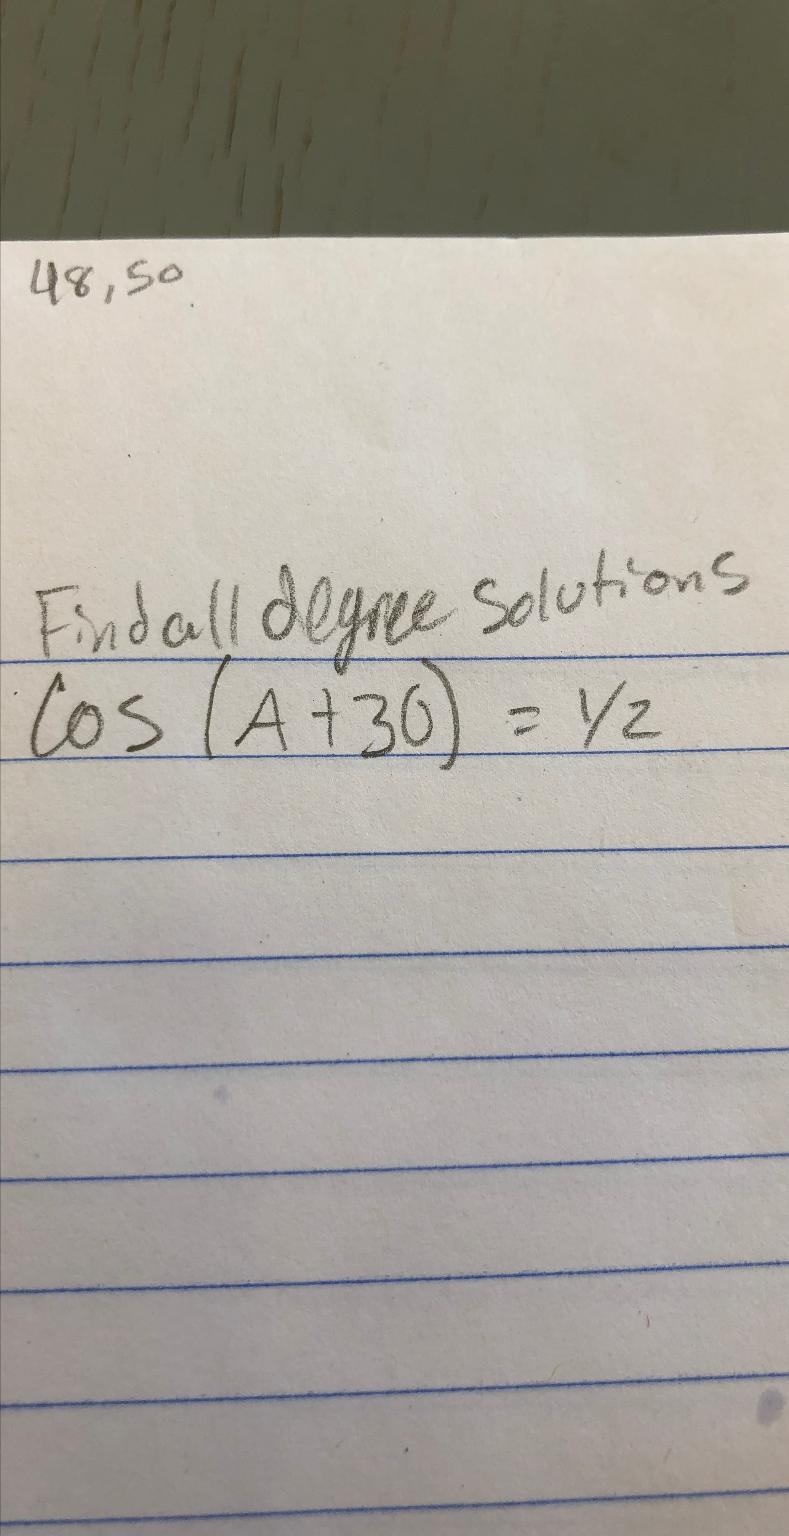 48,50
Find all degree solutions
Cos (A+30) = 1/2